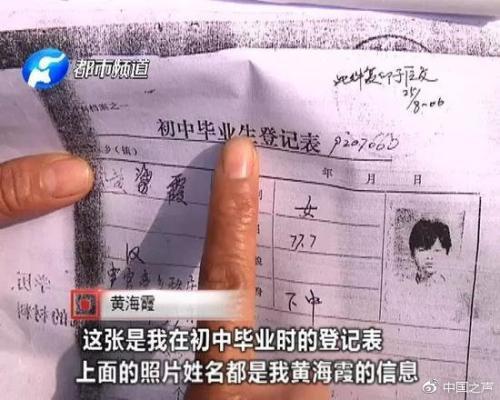 都市频道
此件复印于区交
25/8-06
档案之一
初中毕业生登记表
9207663
乡(镇)
年 月 日
黄海霞
别
女
77.7
汉
下中
黄海霞
这张是我在初中毕业时的登记表
上面的照片姓名都是我黄海霞的信息
@中国之声